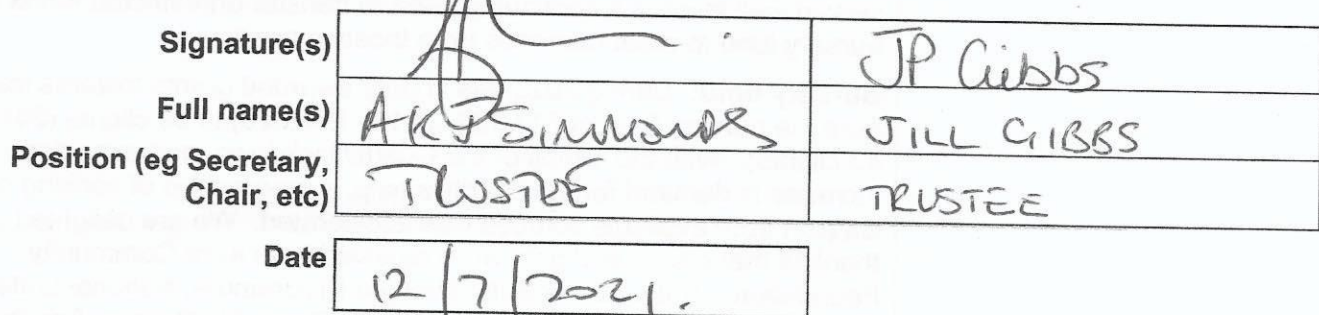 Signature(s) JP Gibbs
Full name(s) AKJ SIMMONDS JILL GIBBS
Position (eg Secretary, Chair, etc) TRUSTEE TRUSTEE
Date 12/7/2021.